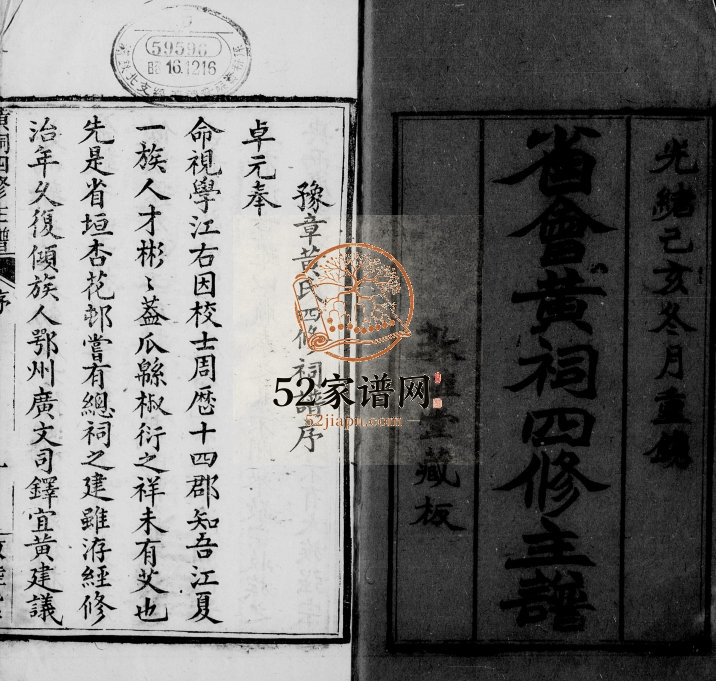 光緒己亥冬月重鐫
省會黃祠四修主譜
敦睦堂藏板
豫章黃氏四修祠譜序
卓元奉
命視學江右因校士周歴十四郡知吾江夏
一族人才彬〻葢瓜緜椒衍之祥未有艾也
先是省垣杏花邨嘗有總祠之建雖洊經修
治年久復傾族人鄂州廣文司鐸宜黃建議
黃祠四修主譜
序
一
59596
昭16.12.16
52家谱网
52jiapu.com